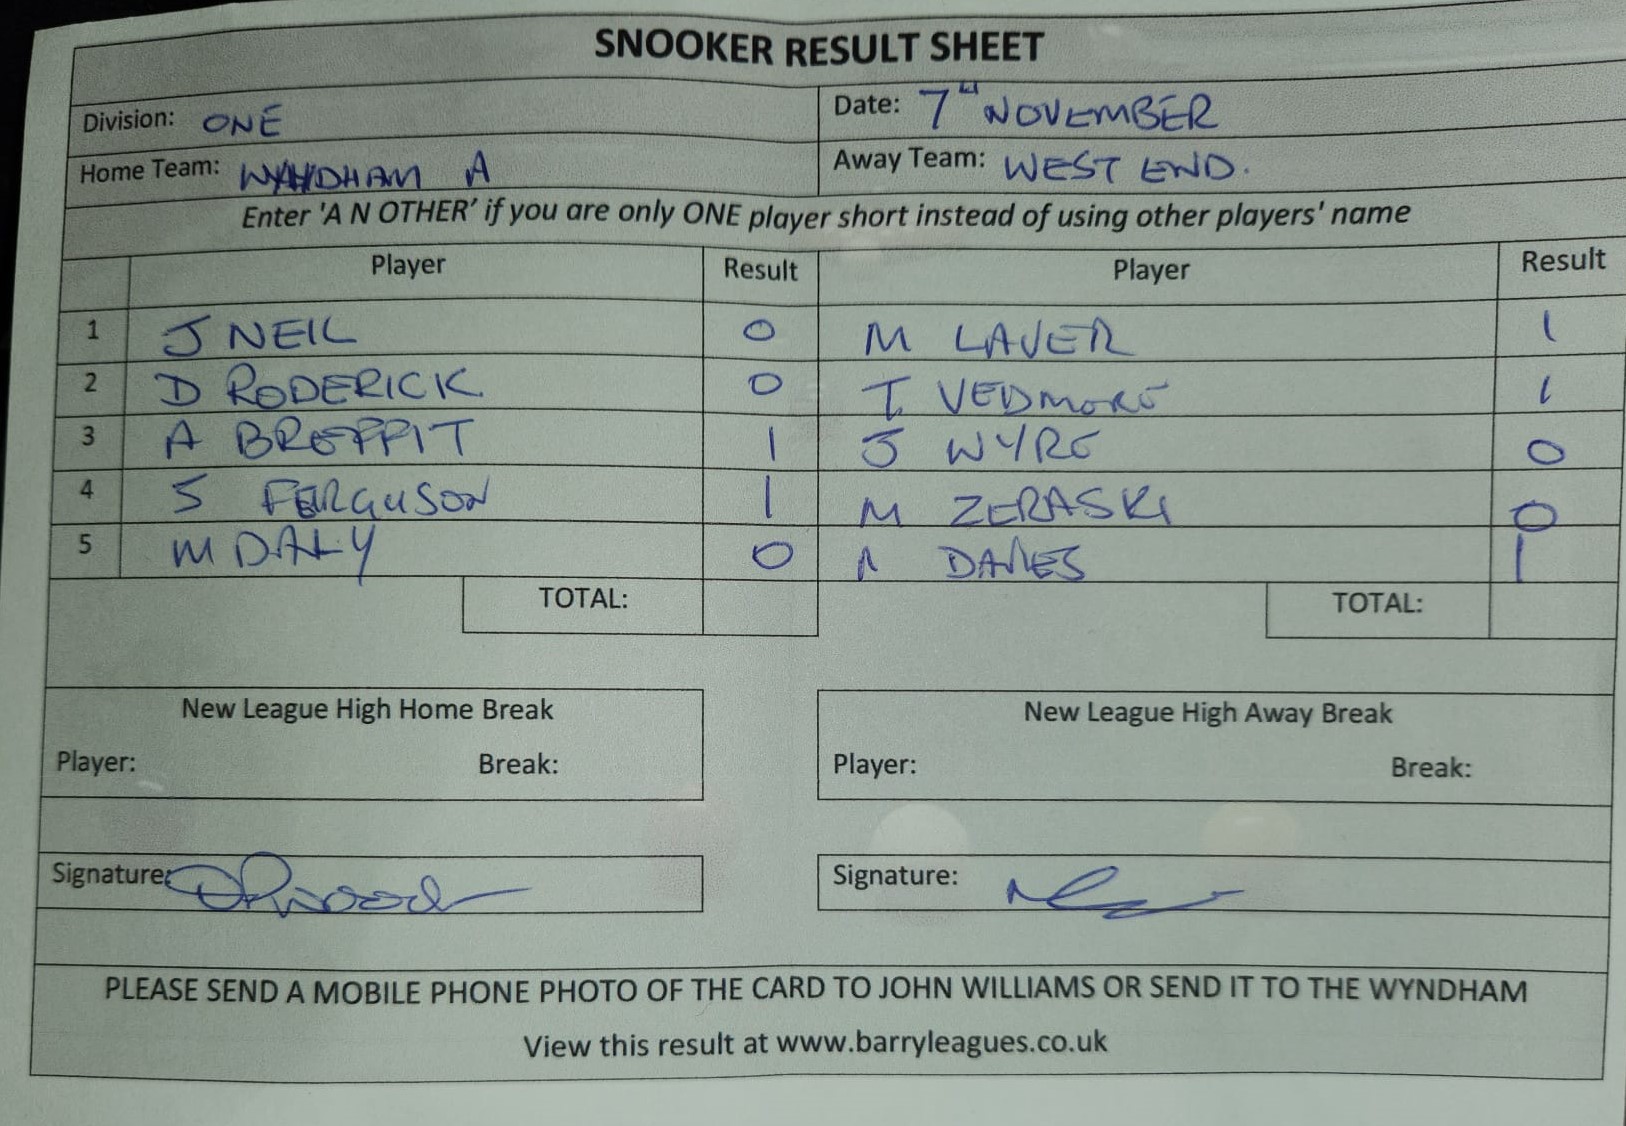 SNOOKER RESULT SHEET
Division: ONE Date: 7TH NOVEMBER
Home Team: WYNDHAM A Away Team: WEST END.
Enter 'A N OTHER' if you are only ONE player short instead of using other players' name
Player Result Player Result
1 J NEIL 0 M LAVER 1
2 D RODERICK 0 T VEDMORE 1
3 A BREFFIT 1 J WYRE 0
4 S FERGUSON 1 M ZERASKI 0
5 M DALY 0 N DAVIES 1
TOTAL: TOTAL:
New League High Home Break New League High Away Break
Player: Break: Player: Break:
Signature: Signature:
PLEASE SEND A MOBILE PHONE PHOTO OF THE CARD TO JOHN WILLIAMS OR SEND IT TO THE WYNDHAM
View this result at www.barryleagues.co.uk